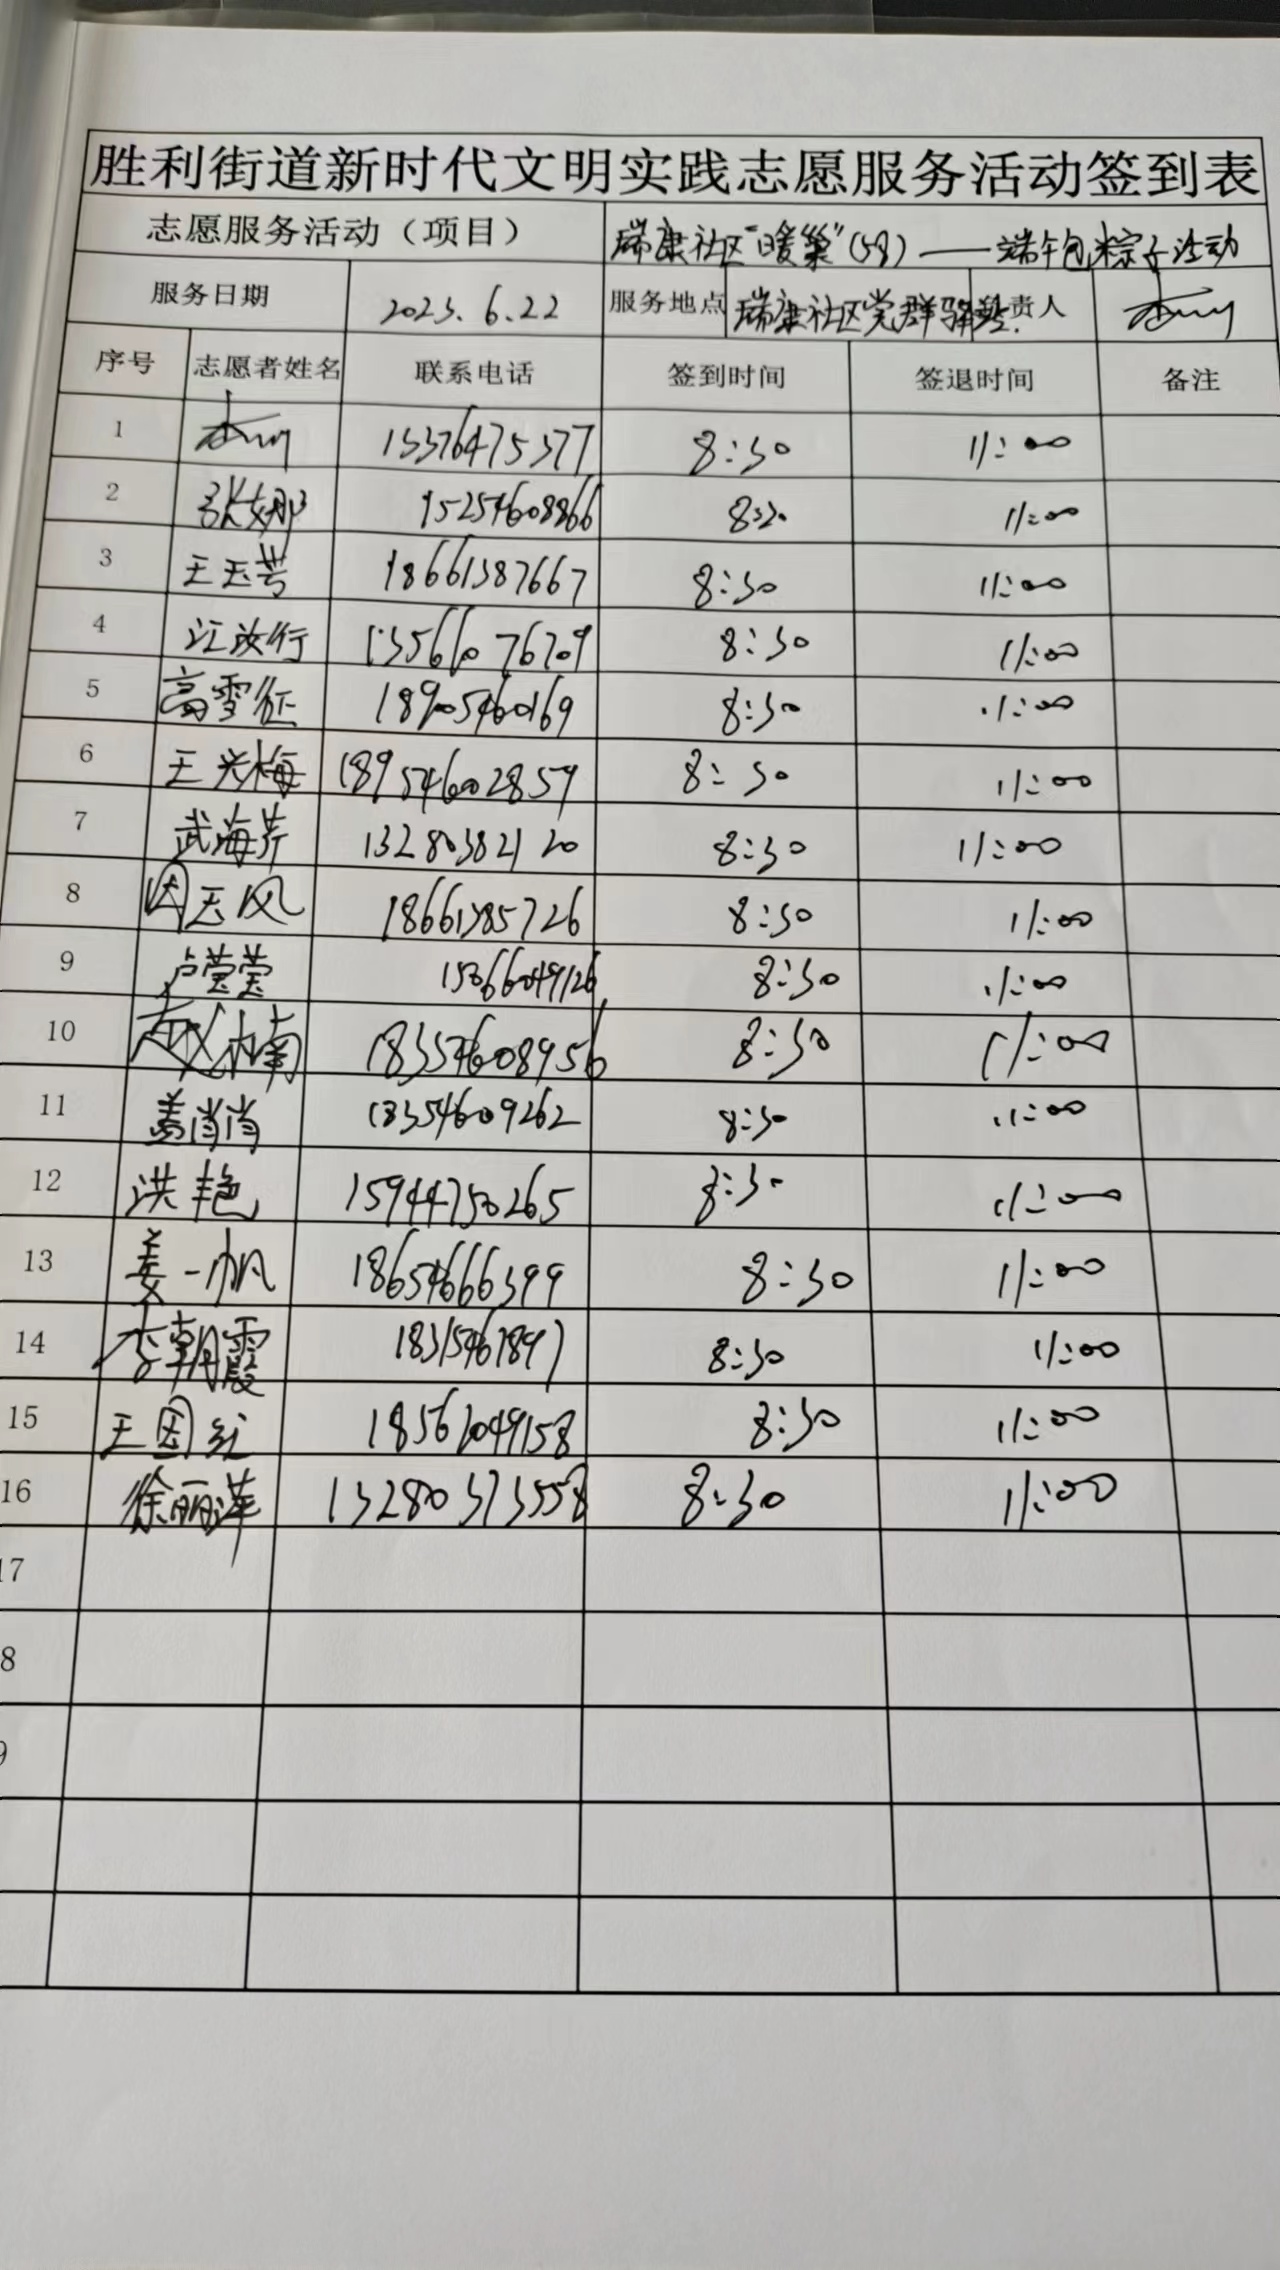 胜利街道新时代文明实践志愿服务活动签到表
志愿服务活动（项目） 瑞康社区"暖巢"(58)——端午包粽子活动
服务日期 2023.6.22 服务地点 瑞康社区党群驿站 责人
序号 志愿者姓名 联系电话 签到时间 签退时间 备注
1 15376475377 8:30 11:00
2 张娜 15254608866 8:30 11:00
3 王玉芳 18661387667 8:30 11:00
4 江汝行 13561076709 8:30 11:00
5 高雪征 18905460169 8:30 11:00
6 王兴梅 189546002859 8:30 11:00
7 武海芹 13280382120 8:30 11:00
8 玉风 18661385726 8:30 11:00
9 卢莹莹 15066049126 8:30 11:00
10 赵楠 18354608956 8:30 11:00
11 姜肖肖 18354609262 8:30 11:00
12 洪艳 15944750265 8:30 11:00
13 姜一帆 18654666399 8:30 11:00
14 李朝霞 8:30 11:00
15 王国红 18561049158 8:30 11:00
16 徐丽萍 13280373558 8:30 11:00
17
8
9